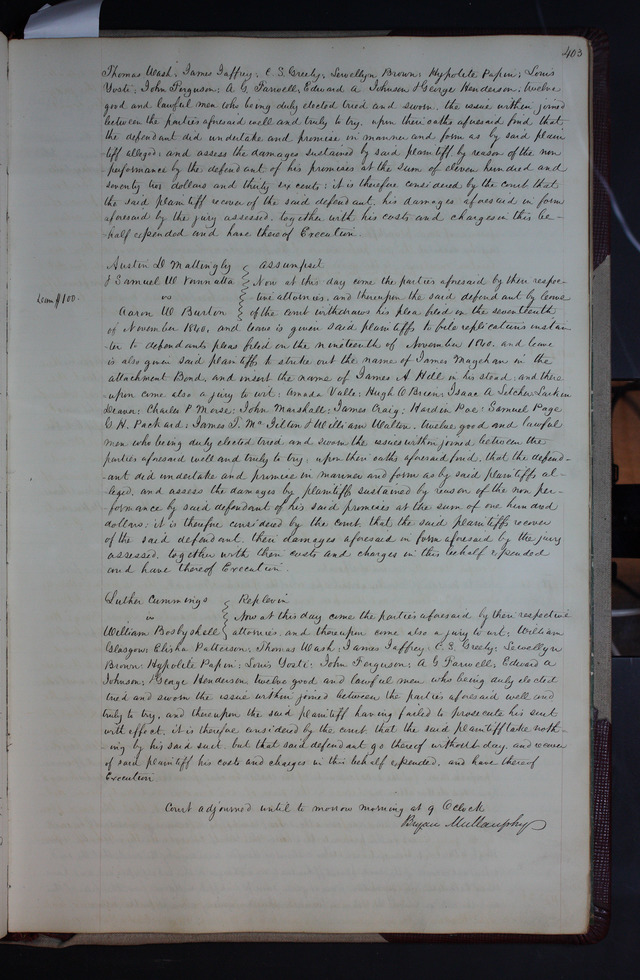 403
Thomas Wash; James Jaffrey; C. S. Greely; Lewellyn Brown; Hypolite Papin; Louis
Yosti; John Ferguson; A G Farwell, Edward A Johnson & George Henderson, twelve
good and lawful men who being duly elected tried and sworn, the issue within joined
between the parties aforesaid well and truly to try, upon their oaths aforesaid find that
the defendant did undertake and promise in manner and form as by said plain
tiff alleged; and assess the damages sustained by said plaintiff by reason of the non
performance by the defendant of his promises at the sum of eleven hundred and
seventy two dollars and thirty six cents; it is therefore considered by the court that
the said plaintiff recover of the said defendant, his damages aforesaid in form
aforesaid by the jury assessed, together with his costs and charges in this be-
half expended and have thereof Execution.
Austin D Mattingly
Assumpsit
& Samuel W Vonnatta
Now at this day come the parties aforesaid by their respec-
$100.
vs
tive attornies, and thereupon the said defendant by leave
Aaron W Burton
of the Court withdraws his plea filed on the seventeenth
of November 1840, and leave is given said plaintiffs to file replications instan-
ter to defendants pleas filed on the nineteenth of November 1840, and leave
is also given said plaintiffs to strike out the name of James Magehan in the
attachment Bond, and insert the name of James A Hill in his stead; and there
upon come also a jury to wit; Amada Valle; Hugh O Brien; Isaac A Letcher Larkin
Deaver; Charles P Morse; John Marshall; James Craig; Hardin Poe; Samuel Page
C H. Packard; James T. Mc Gilton & William Walton, twelve good and lawful
men who being duly elected tried and sworn the issues within joined between the
parties aforesaid well and truly to try; upon their oaths aforesaid find, that the defend-
ant did undertake and promise in manner and form as by said plaintiffs al-
leged, and assess the damages by plaintiffs sustained by reason of the non per-
formance by said defendant of his said promises at the sum of one hundred
dollars; it is therefore considered by the Court, that the said plaintiffs recover
of the said defendant, their damages aforesaid in form aforesaid by the jury
assessed, together with their costs and charges in this behalf expended
and have thereof Execution.
Luther Cummings
Replevin
vs
Now at this day come the parties aforesaid by their respective
William Bosbyshell
attornies, and thereupon come also a jury to wit; William
Glasgow; Elisha Patterson; Thomas Wash; James Jaffrey; C. S. Greely; Lewellyn
Brown Hypolite Papin; Louis Yosti; John Ferguson; A G Farwell; Edward A
Johnson; George Henderson twelve good and lawful men who being duly elected
tried and sworn the issue within joined between the parties aforesaid well and
truly to try, and thereupon the said plaintiff having failed to prosecute his suit
with effect, it is therefore considered by the court that the said plaintiff take noth-
-ing by his said suit, but that said defendant go thereof without day, and recover
of said plaintiff his costs and charges in this behalf expended, and have thereof
Execution
Court adjourned until to morrow morning at 9 O'clock
Bryan Mullanphy